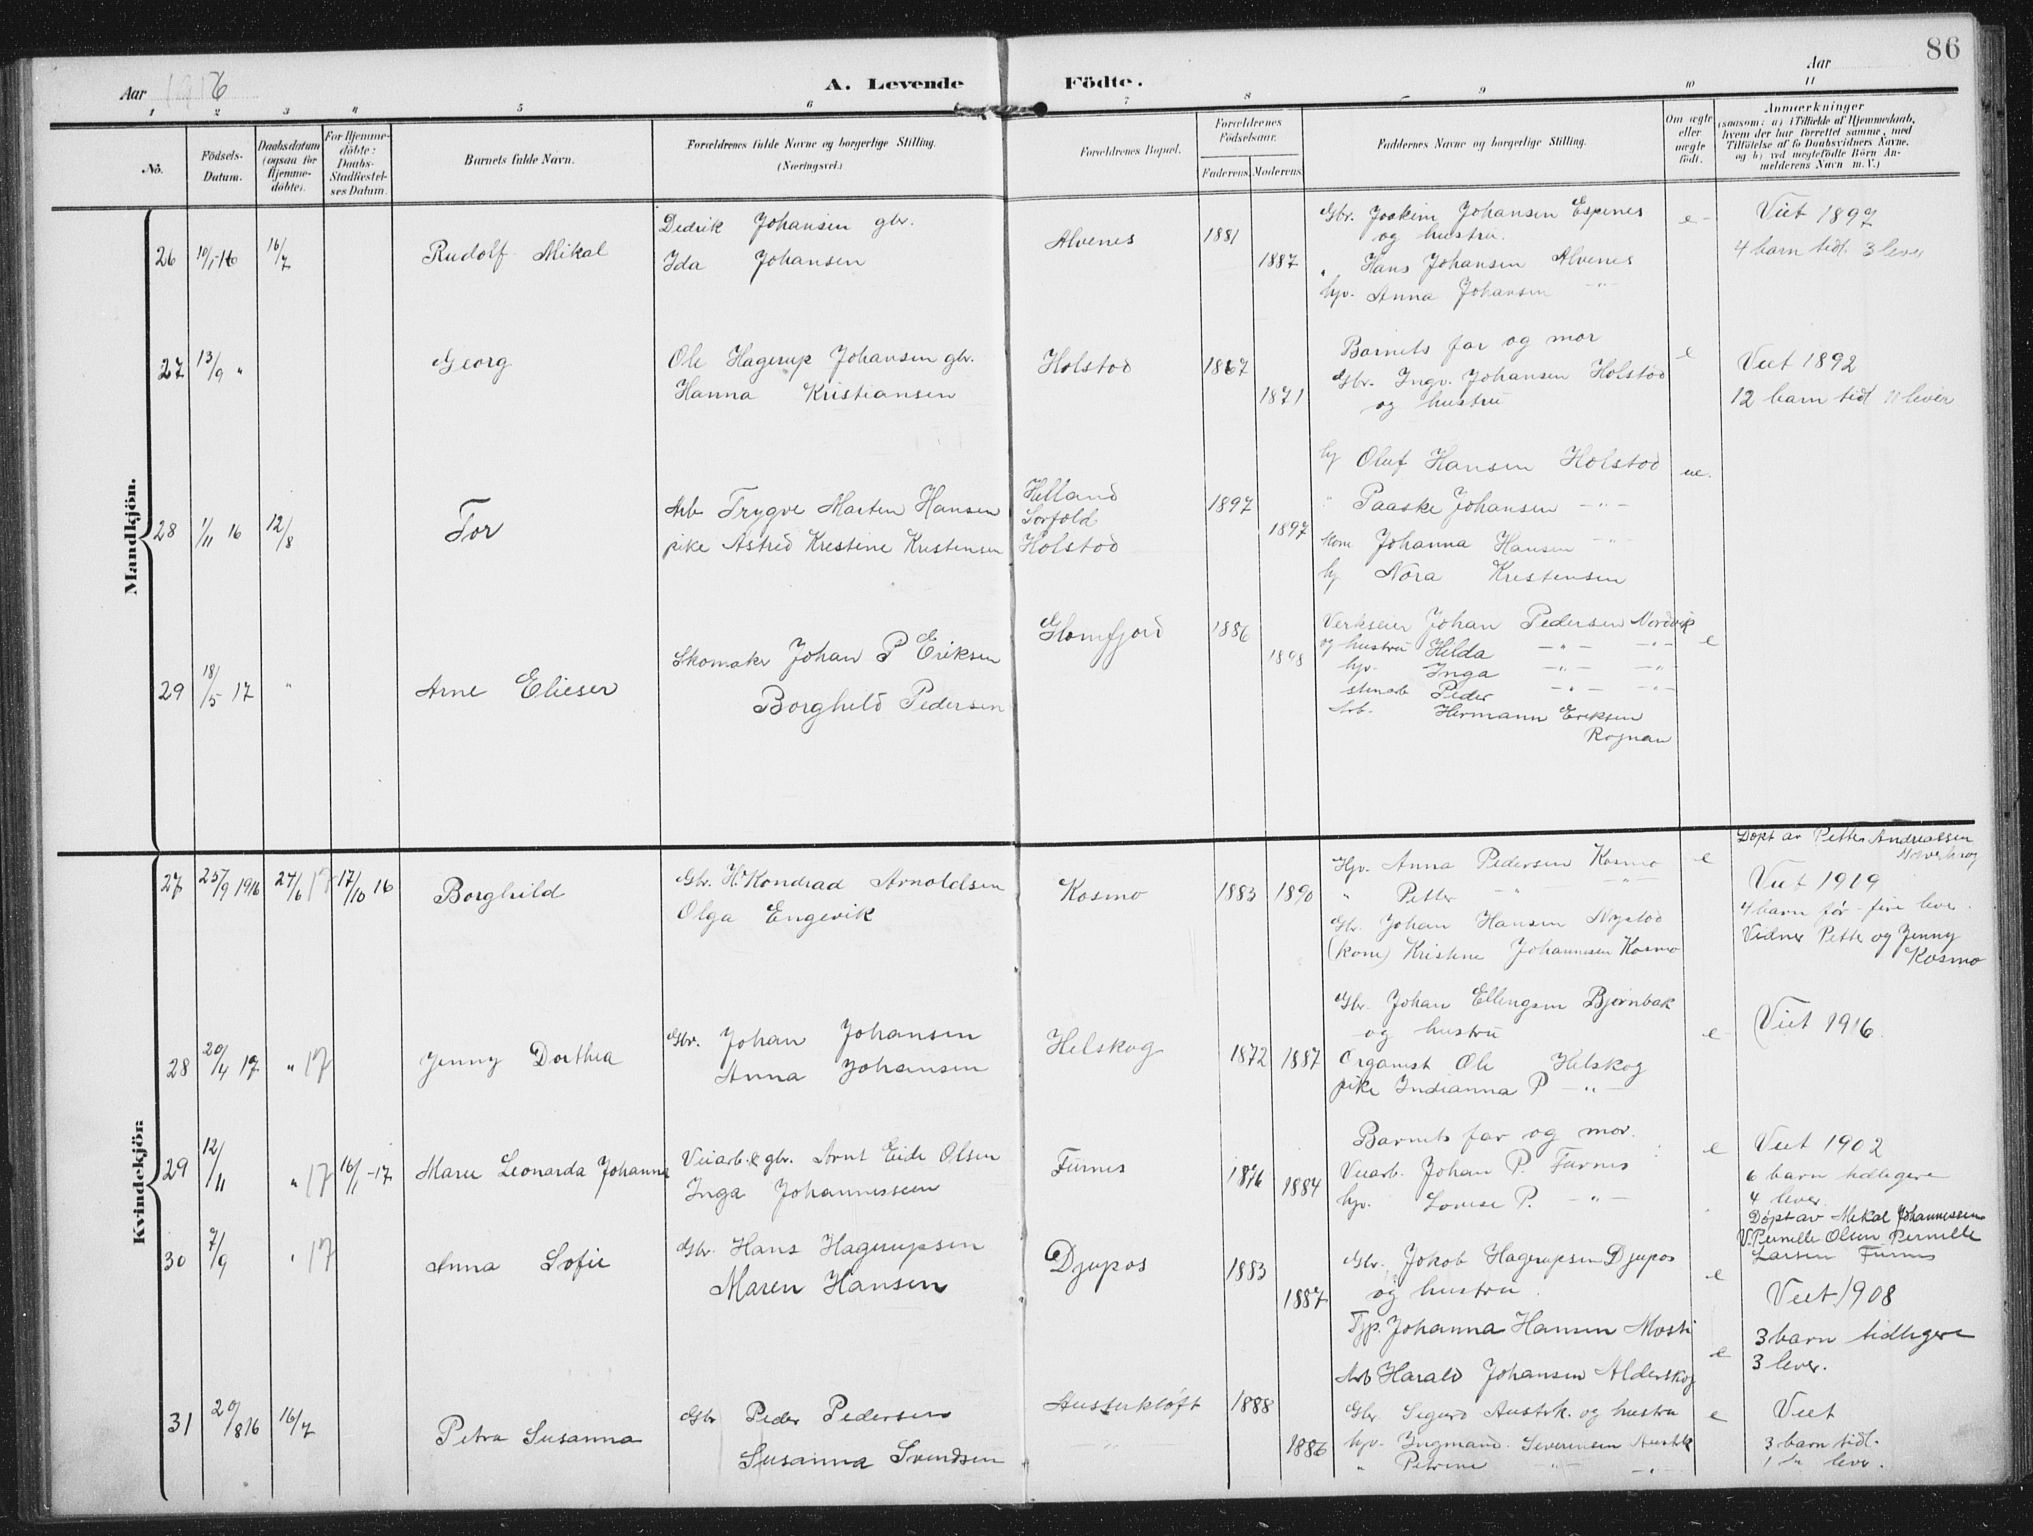 86
Aar 1916 A. Levende Födte. Aar
1 2 3 4 5 6 7 8 9 10 11
No. Födsels-Datum. Daabsdatum (ogsaa for Hjemmedöbte). For Hjemmedöbte: Daabs-Stadfæstelses Datum. Barnets fulde Navn. Forældrenes fulde Navne og borgerlige Stilling. (Næringsvei.) Forældrenes Bopæl. Forældrenes Födselsaar. Faderens. Moderens. Faddernes Navne og borgerlige Stilling. Om ægte eller uægte födt. Anmærkninger (saasom: a) i Tilfælde af Hjemmedaab, hvem der har forrettet samme, med Tilföielse af to Daabsvidners Navne, og b) ved uægtefödte Börn Anmelderens Navn m. V.)
Mandkjön.
26 10/1-16 16/7 Rudolf Mikal Dedrik Johansen gbr. Alvenes 1881 Gbr. Joakim Johansen Espenes e Viet 1897
og hustru.
Ida Johansen 1887 " Hans Johansen Alvenes 4 barn tidl. 3 lever
hjv. Anna Johansen -"-
27 13/9 " Georg Ole Hagerup Johansen gbr. Holstod 1867 Barnets far og mor e Viet 1892
Hanna Kristiansen 1871 Gbr. Ingv. Johansen Holstod 12 barn tidl 11 lever
og hustru
28 1/11 16 12/8 Tor Arb Trygve Marten Hansen Helland Sørfold 1897 hj Oluf Hansen Holstod ue.
" Paaske Johansen -"-
pike Astrid Kristine Kristensen Holstod 1897 kom Johanna Hansen -"-
hj Nora Kristensen
29 18/5 17 " Arne Elieser Skomaker Johan P Eriksen Glomfjord 1886 Verkseier Johan Pedersen Nordvik e
og hustru Helda -"- -"-
Borghild Pedersen 1898 hjv. Inga -"- -"-
stenarb Peder -"- -"-
Arb. Hermann Eriksen
Rognan
Kvindekjön.
27 25/9 1916 24/6 17 17/10 16 Borghild Gbr. H. Kondrad Arnoldsen Kosmo 1883 1890 Hjv. Anna Pedersen Kosmo e Døpt av Petter Andreassen
" Petter " " Viet 1919
Olga Engevik Gbr. Johan Hansen Nystod 4 barn før - fire lever.
(kone) Kristine Johannesen Kosmo Vidner Petter og Jenny
Kosmo
28 20/4 17 " 17 Jenny Dorthea Gbr. Johan Johansen Helskog 1872 1887 Gbr. Johan Ellingsen Bjørnbak e Viet 1916.
og hustru
Anna Johansen Organist Ole Helskog
pike Indianna P -"-
29 12/11 " 17 16/1-17 Maru Leonarda Johanna Veiarb. & gbr. Arnt Eide Olsen Furnes 1876 Barnets far og mor. e Viet 1902
Inga Johannessen 1884 Veiarb. Johan P. Furnes 6 barn tidligere
hjv. Lovise P. -"- 4 lever.
Døpt av Mikal Johannessen
V. Pernille Olsen Pernille
Larsen Furnes
30 7/9 " 17 Anna Sofie Gbr. Hans Hagerupsen Djupos 1883 Gbr. Jakob Hagerupsen Djupos e
Maren Hansen 1887 og hustru. Viet 1908
Tjp. Johanna Hansen Mosti 3 barn tidligere
Arb Harald Johansen Alderskog e 3 lever.
31 20/8 16 16/7 Petra Susanna Gbr Peder Pedersen Austerkløft 1888 Gbr Sigurd Austrk. og hustru e Viet
Susanna Svendsen " 1886 hjv. Ingmand. Severinsen Austk 3 barn tidl.
" Petrine -"- -"- 1 lever.